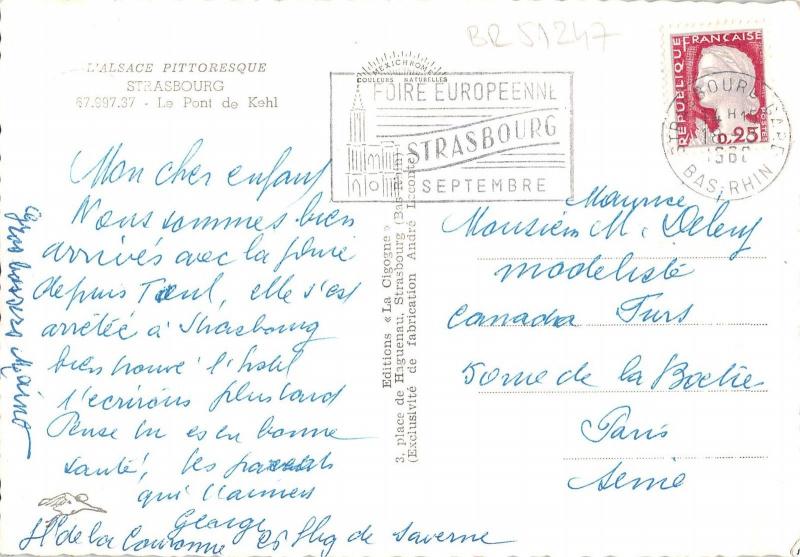 BR 51247
L'ALSACE PITTORESQUE
STRASBOURG
67.997.37 - Le Pont de Kehl
MEXICHROME
COULEURS NATURELLES
FOIRE EUROPEENNE
STRASBOURG
SEPTEMBRE
REPUBLIQUE FRANÇAISE
0,25
POSTES
STRASBOURG GARE
BAS RHIN
Editions « La Cigogne »
3, place de Haguenau, Strasbourg (Bas-Rhin)
(Exclusivité de fabrication André Leconte)
Mon cher enfant
Nous sommes bien
arrivés avec la pluie
depuis Toul, elle s'est
arrêtée à Strasbourg
bien trouvé l'hotel
t'ecrirons plus tard
Pense tu es en bonne
santé, tes parents
qui t'aiment
George
Ht de la Couronne 26 fbg de Saverne
gros baisers
Maurice
Monsieur M.
modeliste
Canada Furs
50 rue de la Boetie
Paris
Seine